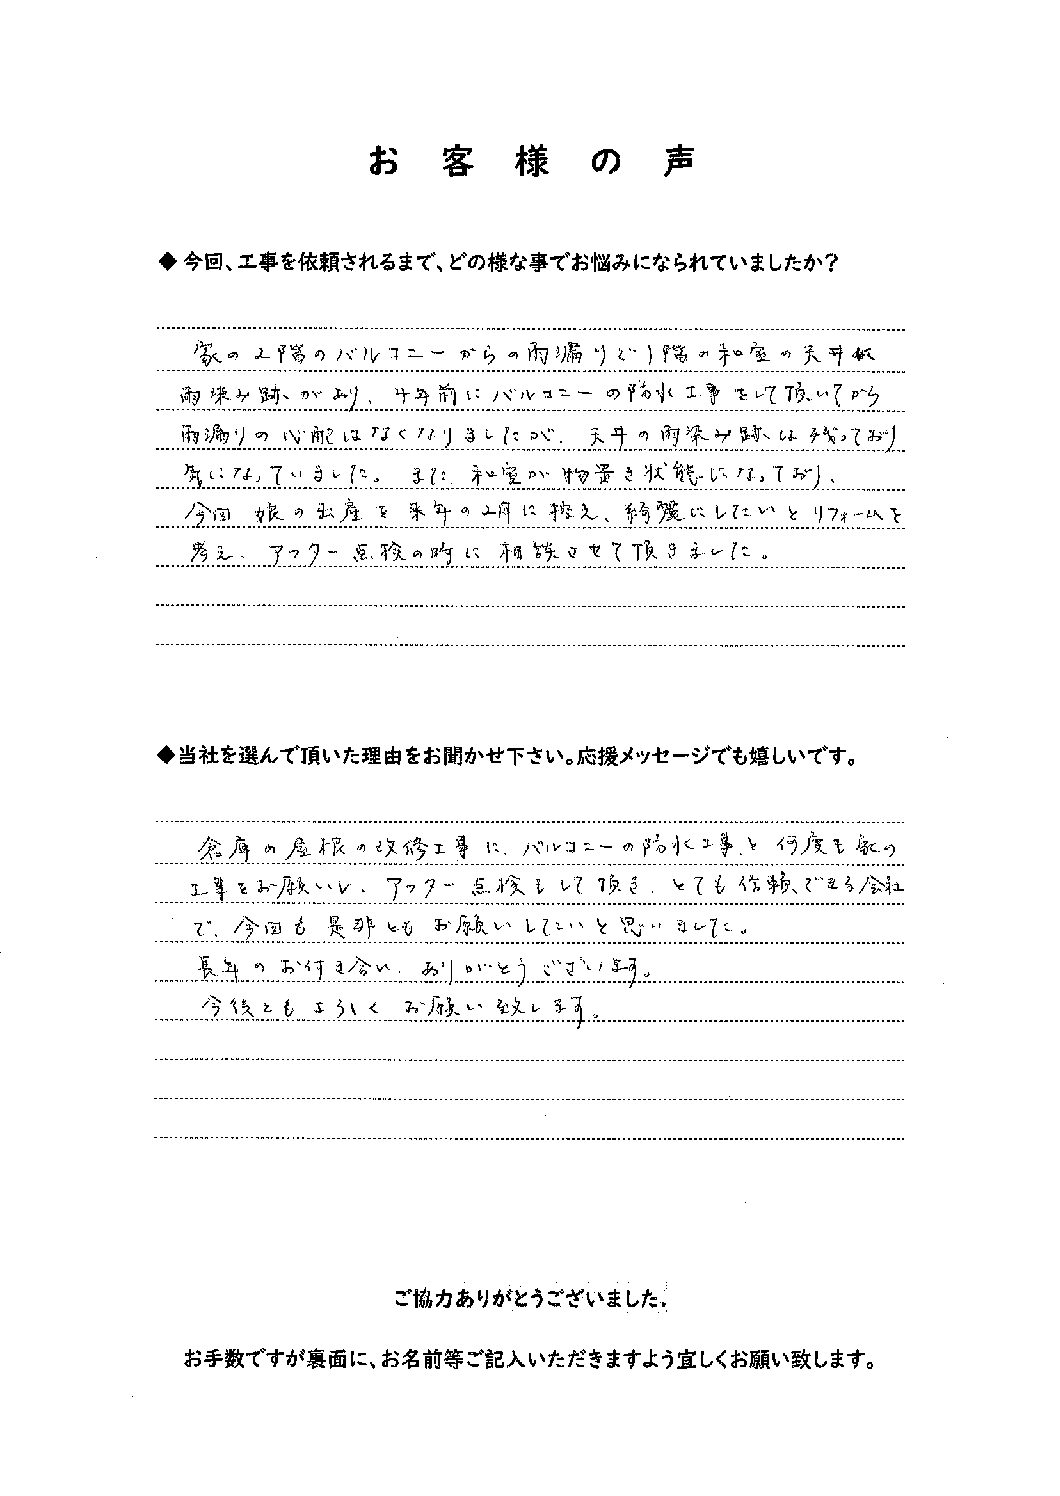 お客様の声
◆今回、工事を依頼されるまで、どの様な事でお悩みになられていましたか？
家の2階のバルコニーからの雨漏りで1階の和室の天井に
雨染み跡があり、4年前にバルコニーの防水工事をして頂いてから
雨漏りの心配はなくなりましたが、天井の雨染み跡は残っており
気になっていました。また和室が物置き状態になっており、
今回娘の出産を来年の2月に控え、綺麗にしたいとリフォームを
考え、アフター点検の時に相談させて頂きました。
◆当社を選んで頂いた理由をお聞かせ下さい。応援メッセージでも嬉しいです。
倉庫の屋根の改修工事に、バルコニーの防水工事、と何度も家の
工事をお願いし、アフター点検もして頂き、とても信頼できる会社
で、今回も是非ともお願いしたいと思いました。
長年のお付き合い、ありがとうございます。
今後ともよろしくお願い致します。
ご協力ありがとうございました。
お手数ですが裏面に、お名前等ご記入いただきますよう宜しくお願い致します。